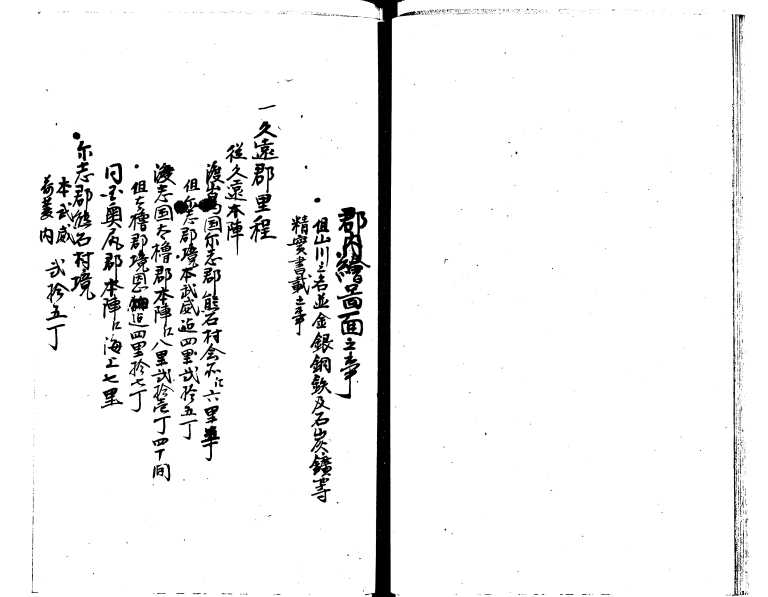 郡内繪啚面之事
但山川之名並金銀銅鉄及石炭鑛等
精實書載之事
一久遠郡里程
従久遠本陣
渡島国尓志郡熊石村会所江六里
但尓志郡境本武威迠四里弐拾五丁
後志国太櫓郡本陣江八里弐拾壱丁四十間
但太櫓郡境迠四里拾七丁
同国奥尻郡本陣江海上七里
尓志郡熊石村境
本武威
弐拾五丁
内